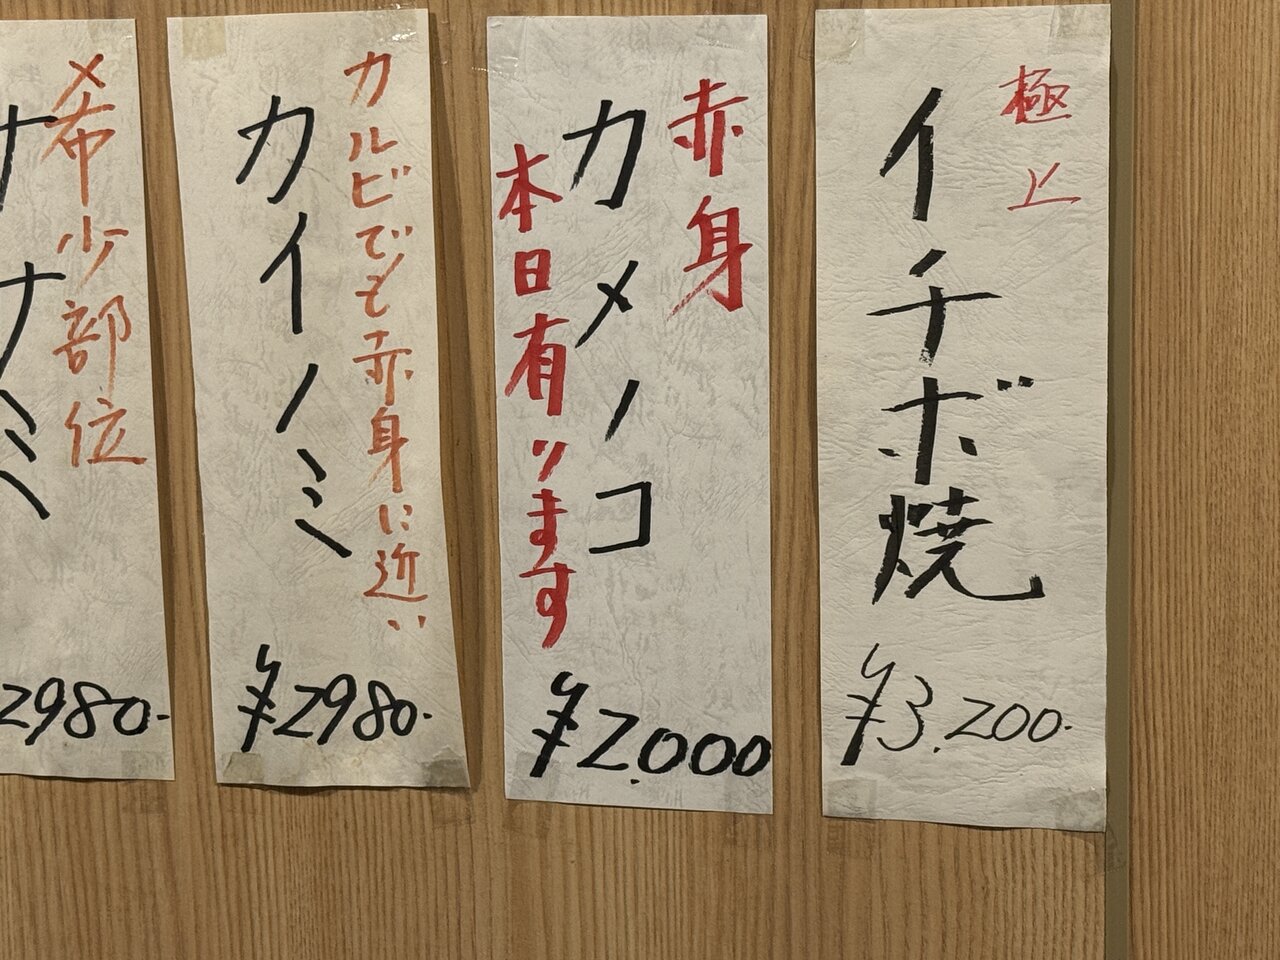 極上
イチボ焼
¥3,200.
赤身
カメノコ
本日有ります
¥2,000
カルビでも赤身に近い
カイノミ
¥2980.
希少部位
2980.